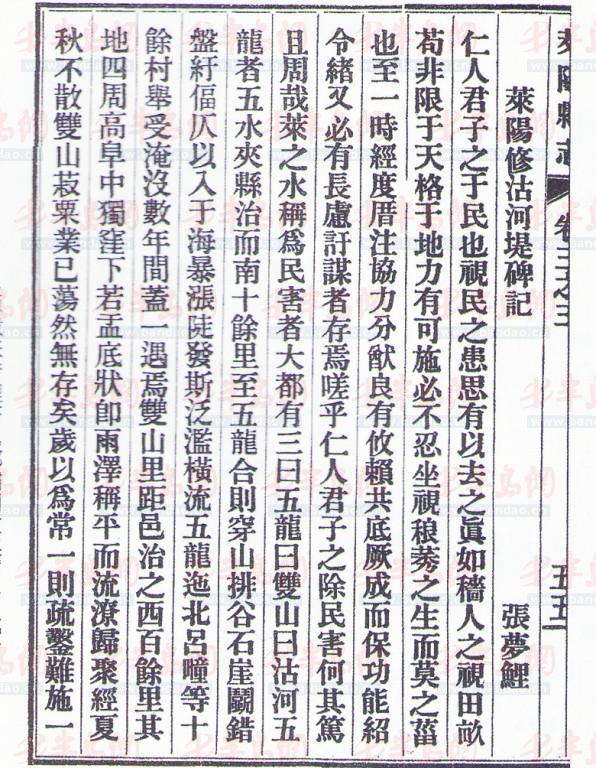 萊陽縣志 卷三之三 五五
萊陽修沽河堤碑記 張夢鯉
仁人君子之于民也視民之患思有以去之眞如穡人之視田畝
苟非限于天格于地力有可施必不忍坐視稂莠之生而莫之菑
也至一時經度厝注協力分猷良有攸賴共底厥成而保功能紹
令緒又必有長慮訏謀者存焉嗟乎仁人君子之除民害何其篤
且周哉萊之水稱爲民害者大都有三曰五龍曰雙山曰沽河五
龍者五水夾縣治而南十餘里至五龍合則穿山排谷石崖鬭錯
盤紆偪仄以入于海暴漲陡發斯泛濫橫流五龍迤北呂疃等十
餘村舉受淹沒數年間蓋 遇焉雙山里距邑治之西百餘里其
地四周高阜中獨窪下若盂底狀卽雨澤稱平而流潦歸聚經夏
秋不散雙山菽粟業已蕩然無存矣歲以爲常一則疏鑿難施一